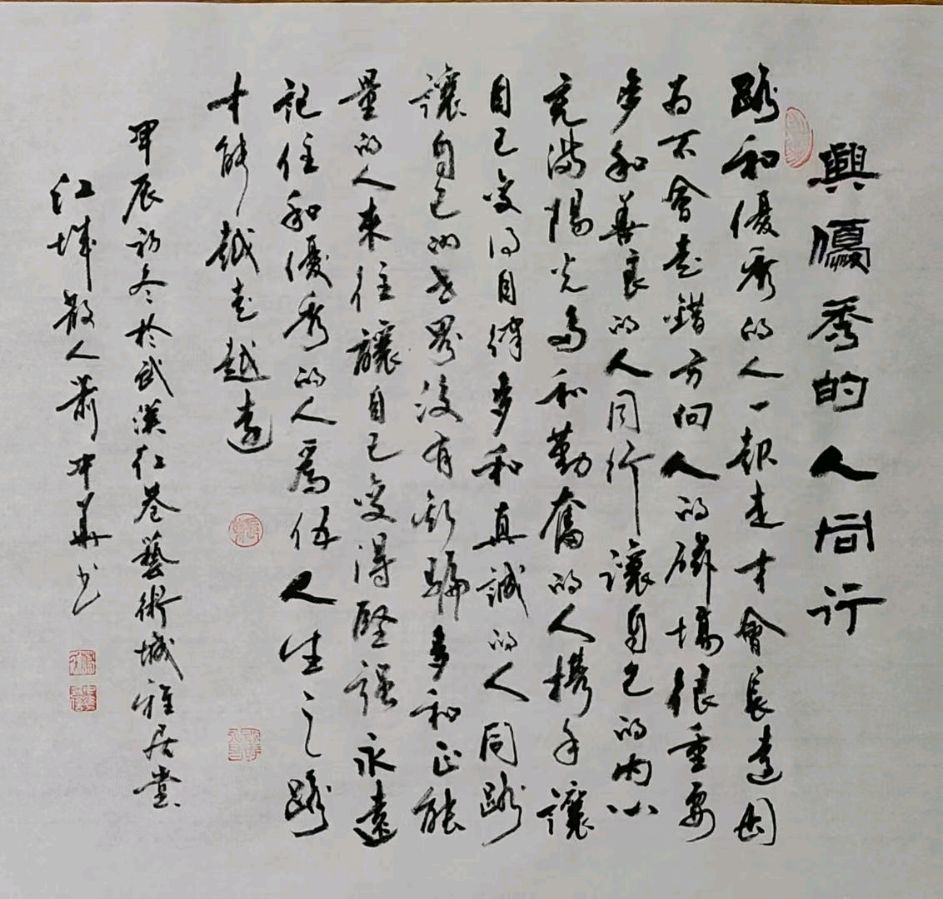 興優秀的人同行
路和優秀的人一起走才會長遠因
为不會走錯方向人的磁場很重要
多和善良的人同行讓自己的内心
充满陽光多和勤奮的人携手讓
自己变得自律多和真誠的人同路
讓自己的世界没有欺騙多和正能
量的人来往讓自己变得堅强永遠
記住和優秀的人為伍人生之路
才能越走越遠
甲辰初冬於武漢红巷藝術城雅居堂
江城散人蕭冲華书